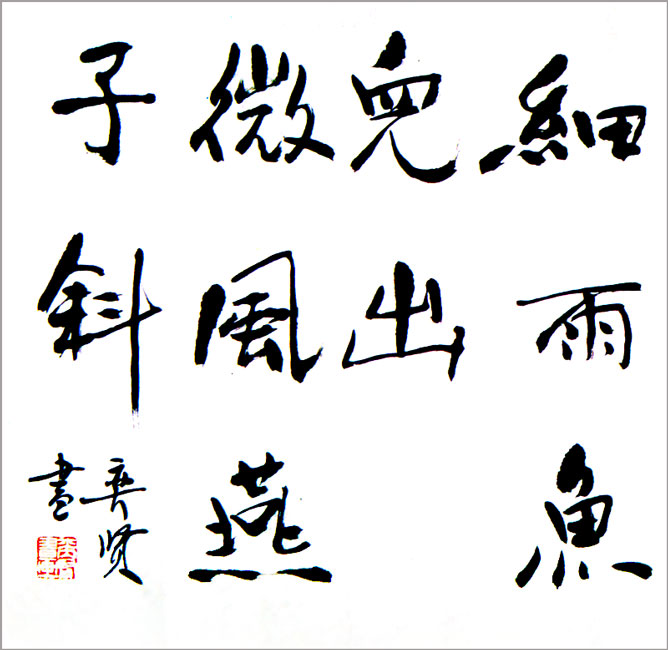 細雨魚
兒出
微風燕
子斜
贤
書